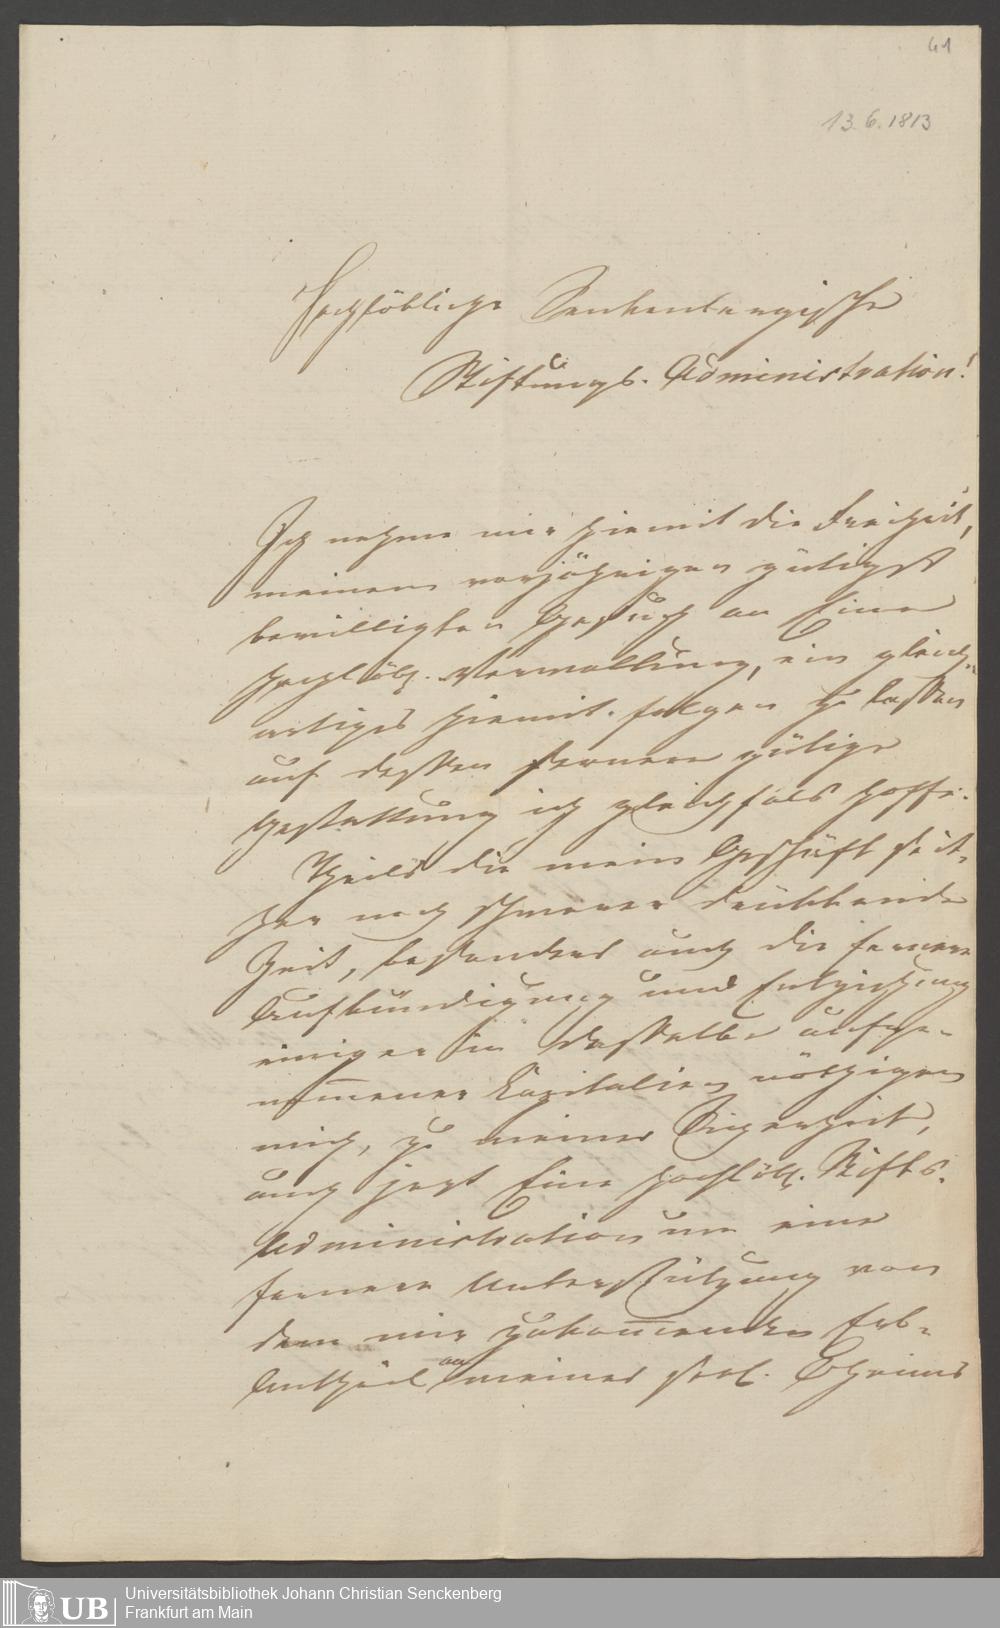 61
13.6.1813
Hochlöbliche Senkenbergische
Stiftungs-Administration!
Ich nehme mir hiemit die Freiheit,
meinem vorjährigen gütigst
bewilligten Gesuch an Eine
hochlöbl. Verwaltung, ein gleich-
artiges hiemit folgen zu lassen
auf dessen fernere gütige
Gestattung ich gleichfals hoffe.
Theils die mein Geschäft seit-
her noch schwerer drükkende
Zeit, besonders auch die fernere
Aufkündigung und Entziehung
einiger in dasselbe aufge-
nommener Capitalien nöthigen
mich, zu meiner Sicherheit,
auch jezt Eine hochlöbl. Stifts-
Administration um eine
fernere Unterstützung von
dem mir zukommenden Erb-
Antheil an meines seel. Oheims
UB
Universitätsbibliothek Johann Christian Senckenberg
Frankfurt am Main